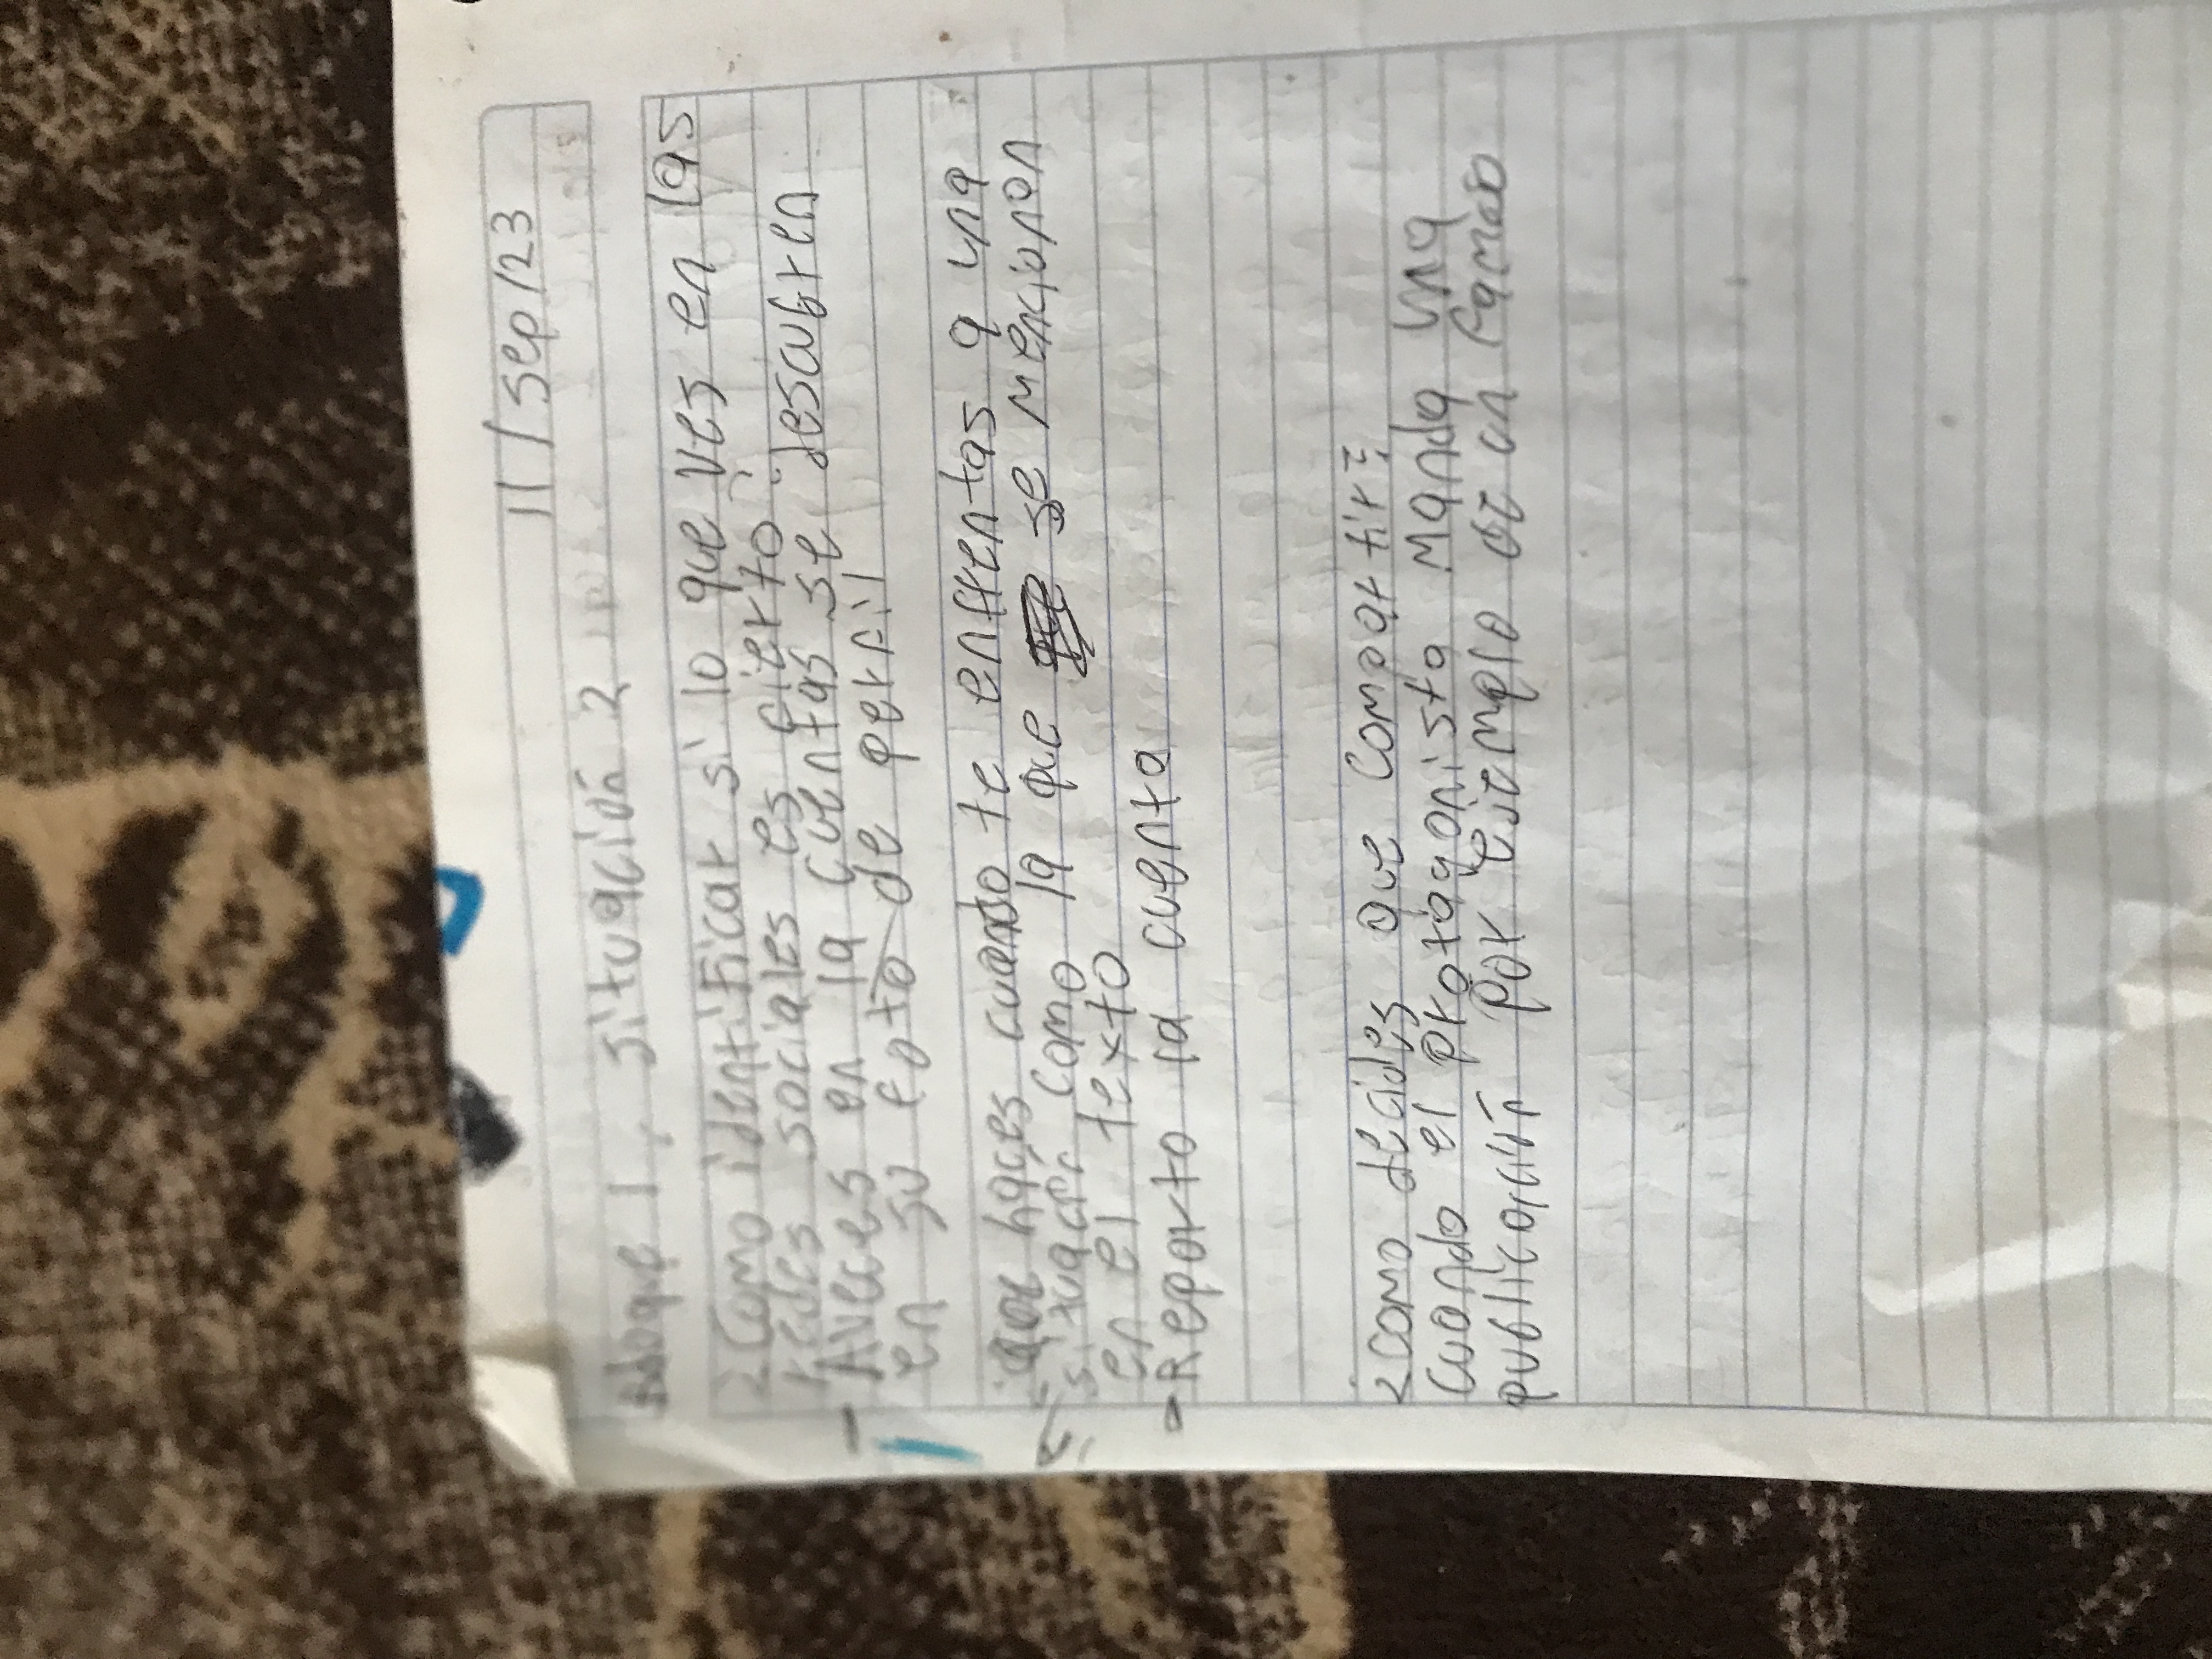 11/sep/23
Bloque 1, situación 2
¿Como identificar si lo que ves en las
redes sociales es cierto?
- Aveces en la cuentas se descubren
en su foto de perfil
¿que haces cuando te enffrentas a una
situación como la que se mencionan
en el texto
- Reporto la cuenta
¿como decides que compartir?
Cuando el protagonista manda una
publicación por ejemplo de un famoso